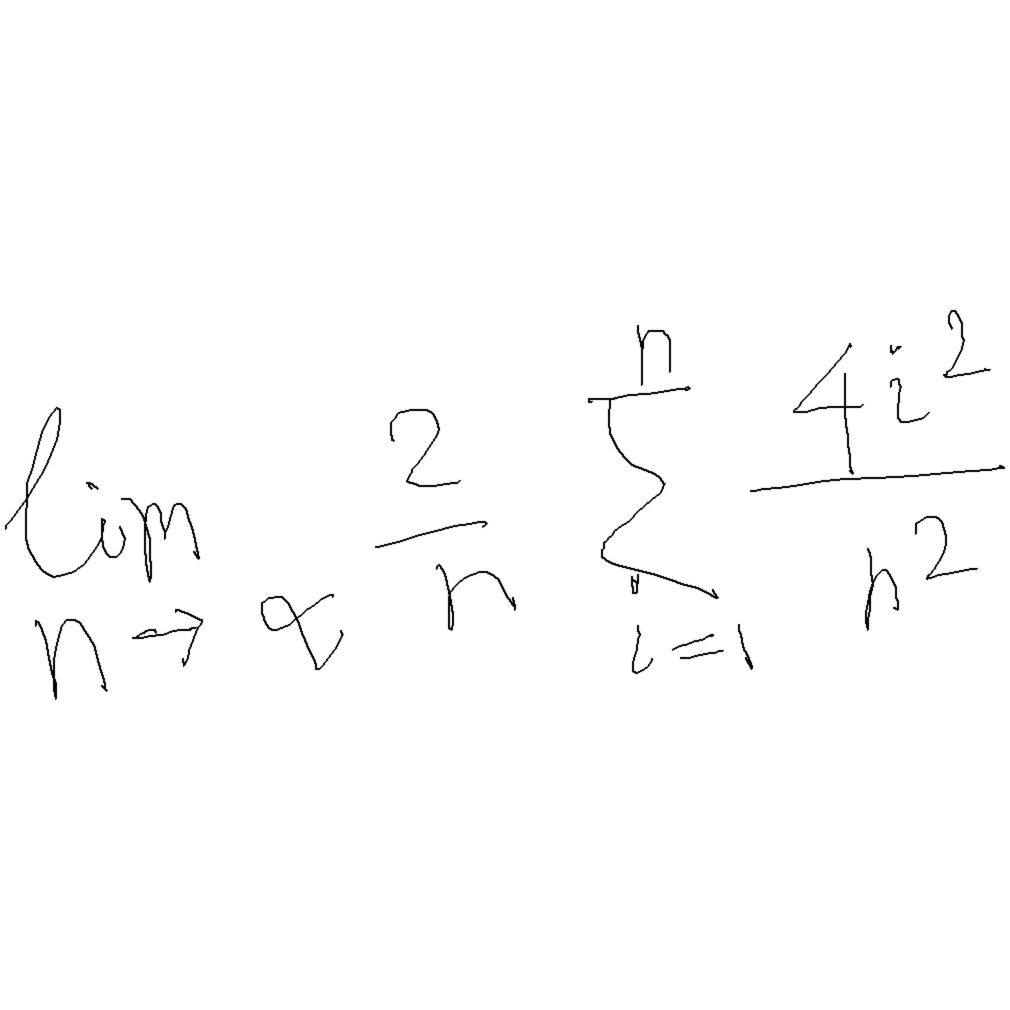 lim n→∞ 2/n ∑ i=1 n 4i²/n²